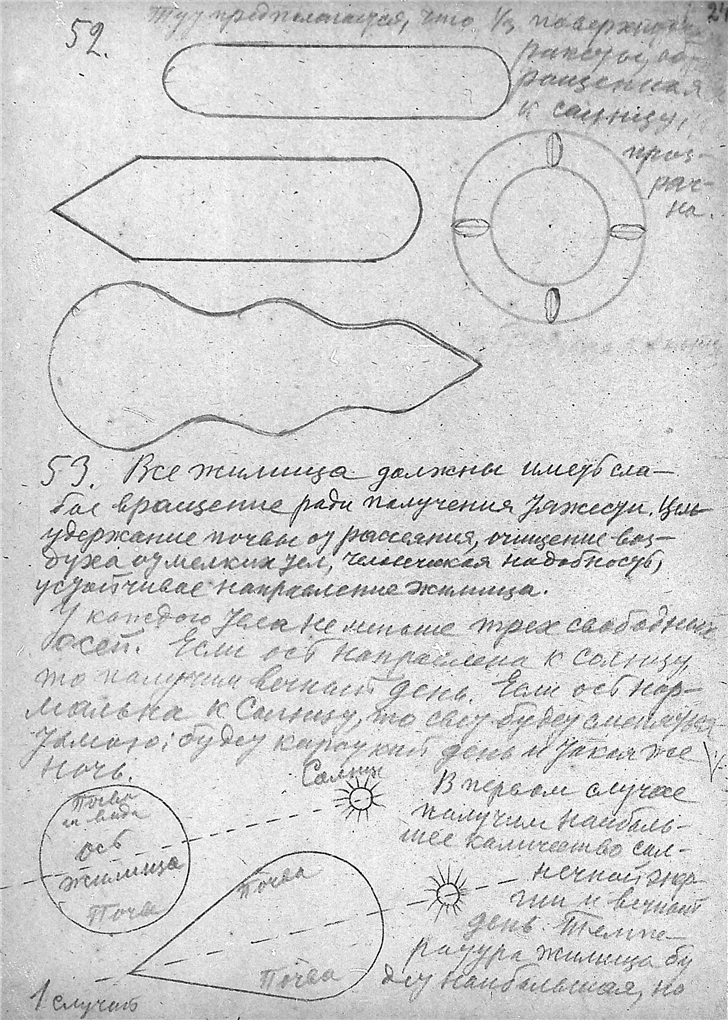 52.
Тут предполагается, что 1/3 поверхности
ракеты, об-
ращенная
к солнцу,
проз-
рач-
на.
53. Все жилища должны иметь сла-
бое вращение ради получения тяжести. Цель
удержание почвы от рассеяния, очищение воз-
духа от мелких тел, человеческая надобность,
устойчивое направление жилища.
У каждого тела не меньше трех свободных
осей. Если ось направлена к Солнцу,
то получим вечный день. Если ось нор-
мальна к Солнцу, то свет будет сменяться
тьмою; будет краткий день и такая же
ночь.
Солнце
В первом случае
получим наиболь-
шее количество сол-
нечной энер-
гии и вечный
день. Темпе-
ратура жилища бу
дет наибольшая, но
Почва
и вода
ось
жилища
Почва
Почва
Почва
1 случай